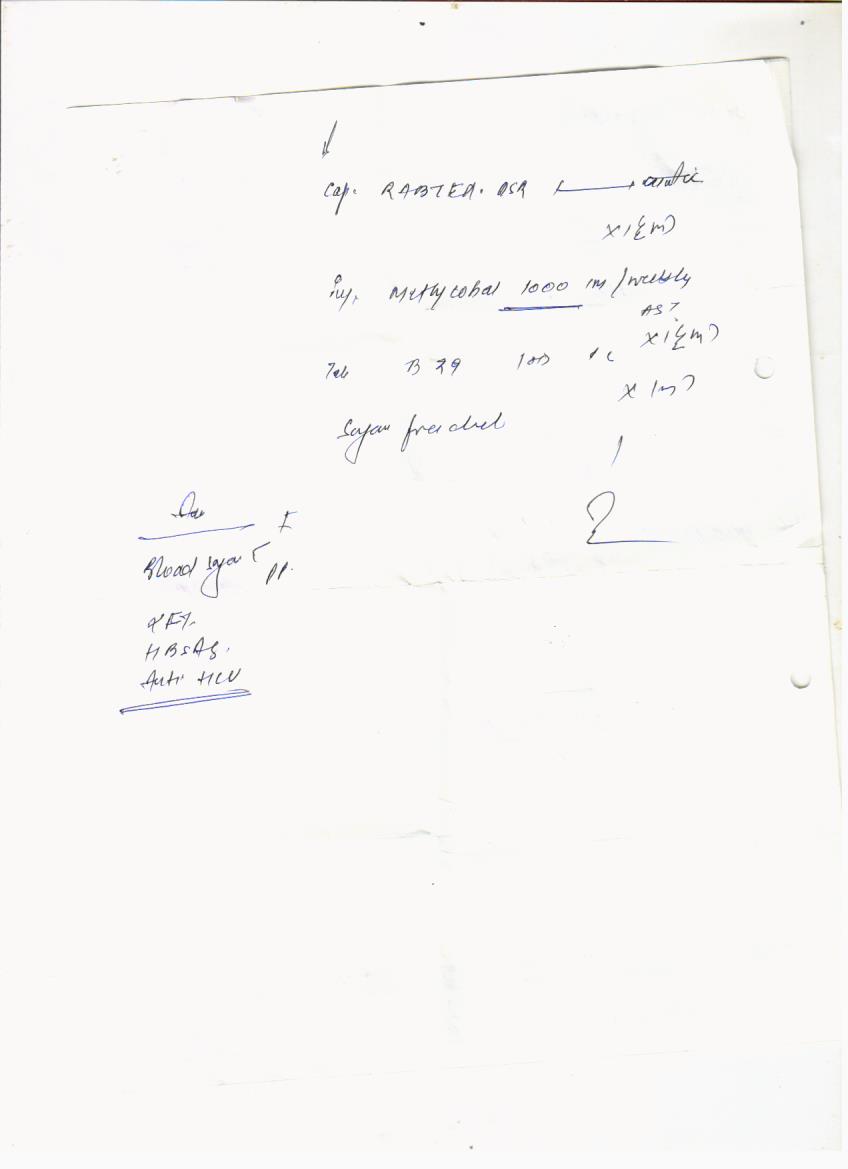 Cap. RABTEA. DSR
X 1 (m)
Inj. Methycobal 1000 IM / weekly
AST
X 1 (m)
Tab B 29 1 OD
X 1m)
Sugar free diet
Adv
F
Blood Sugar
PP.
KFT.
HBsAg.
Anti HCV